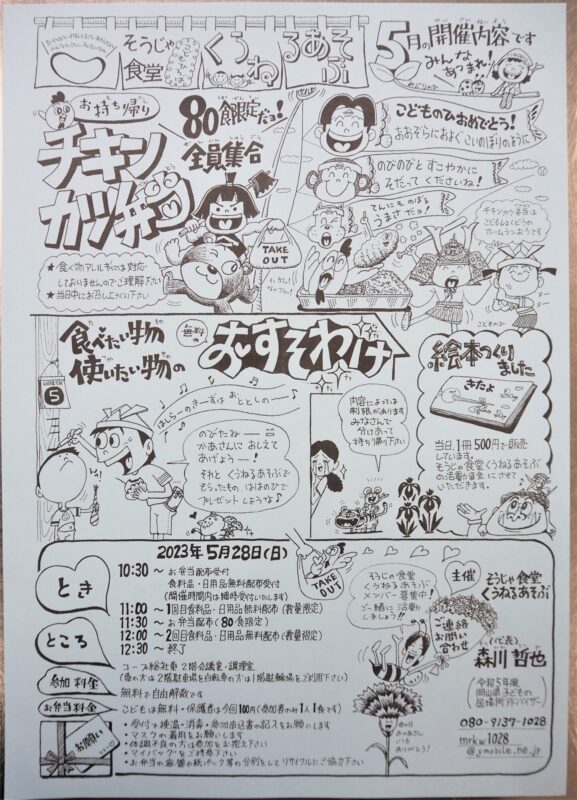 そうじゃ
食堂
くうねるあそぶ
5月の開催内容です
みんな
あつまれ!
お持ち帰り
80食限定だョ!
全員集合
チキン
カツ弁当
TAKE
OUT
★食べ物アレルギーには対応
しておりませんのでご理解下さい
★当日中にお召し上がり下さい
こどものひおめでとう!
おおぞらにおよぐこいのぼりのように
のびのびとすこやかに
そだってくださいね!
てんにものぼる
うまさだョ!
チキンカツ弁当は
こどもしょくどうの
ホームランおうです
こどものひ
食べたい物
使いたい物の
無料の
おすそわけ
5
はしら〜のき〜ずはおととしの〜
のびたね〜
かあさんにおしえて
あげよう〜!
それとくうねるあそぶで
そろったものはははのひで
プレゼントしような♪
内容によっては
制限があります
みなさんで
分けあって
持ち帰り下さい
絵本つくり
ました
きたよ
当日、1冊500円で販売
しています。
そうじゃ食堂くうねるあそぶ
の活動資金にさせて
いただきます。
とき
2023年5月28日(日)
10:30〜お弁当配布受付
食料品・日用品無料配布受付
(開催時間内は随時受付いたします)
11:00〜1回目食料品・日用品無料配布(数量限定)
11:30〜お弁当配布(80食限定)
12:00〜2回目食料品・日用品無料配布(数量限定)
12:30〜終了
TAKE
OUT
ところ
コープ総社東2階会議室・調理室
(車の方は2階駐車場を自転車の方は1階駐輪場をご利用下さい)
参加料金
無料で自由解散です
お弁当料金
こどもは無料・保護者は今回100円(参加者のみ1人1食です)
お願い
・受付で検温・消毒・参加申込書の記入をお願いします
・マスクの着用をお願いします
・体調不良の方は参加をお控え下さい
・マイバッグをご持参下さい
・お弁当の容器や紙パック等の分別をしてリサイクルにご協力下さい
そうじゃ食堂
くうねるあそぶ
メンバー募集中!
ご一緒に活動
しましょう!!
ご連絡
お問い
合わせ
母の日
おかあさん
いつも
ありがとう!
主催
そうじゃ食堂
くうねるあそぶ
(代表)
森川哲也
令和5年度
岡山県子どもの
居場所アドバイザー
080-9137-1028
mrkw1028
@ymobile.ne.jp